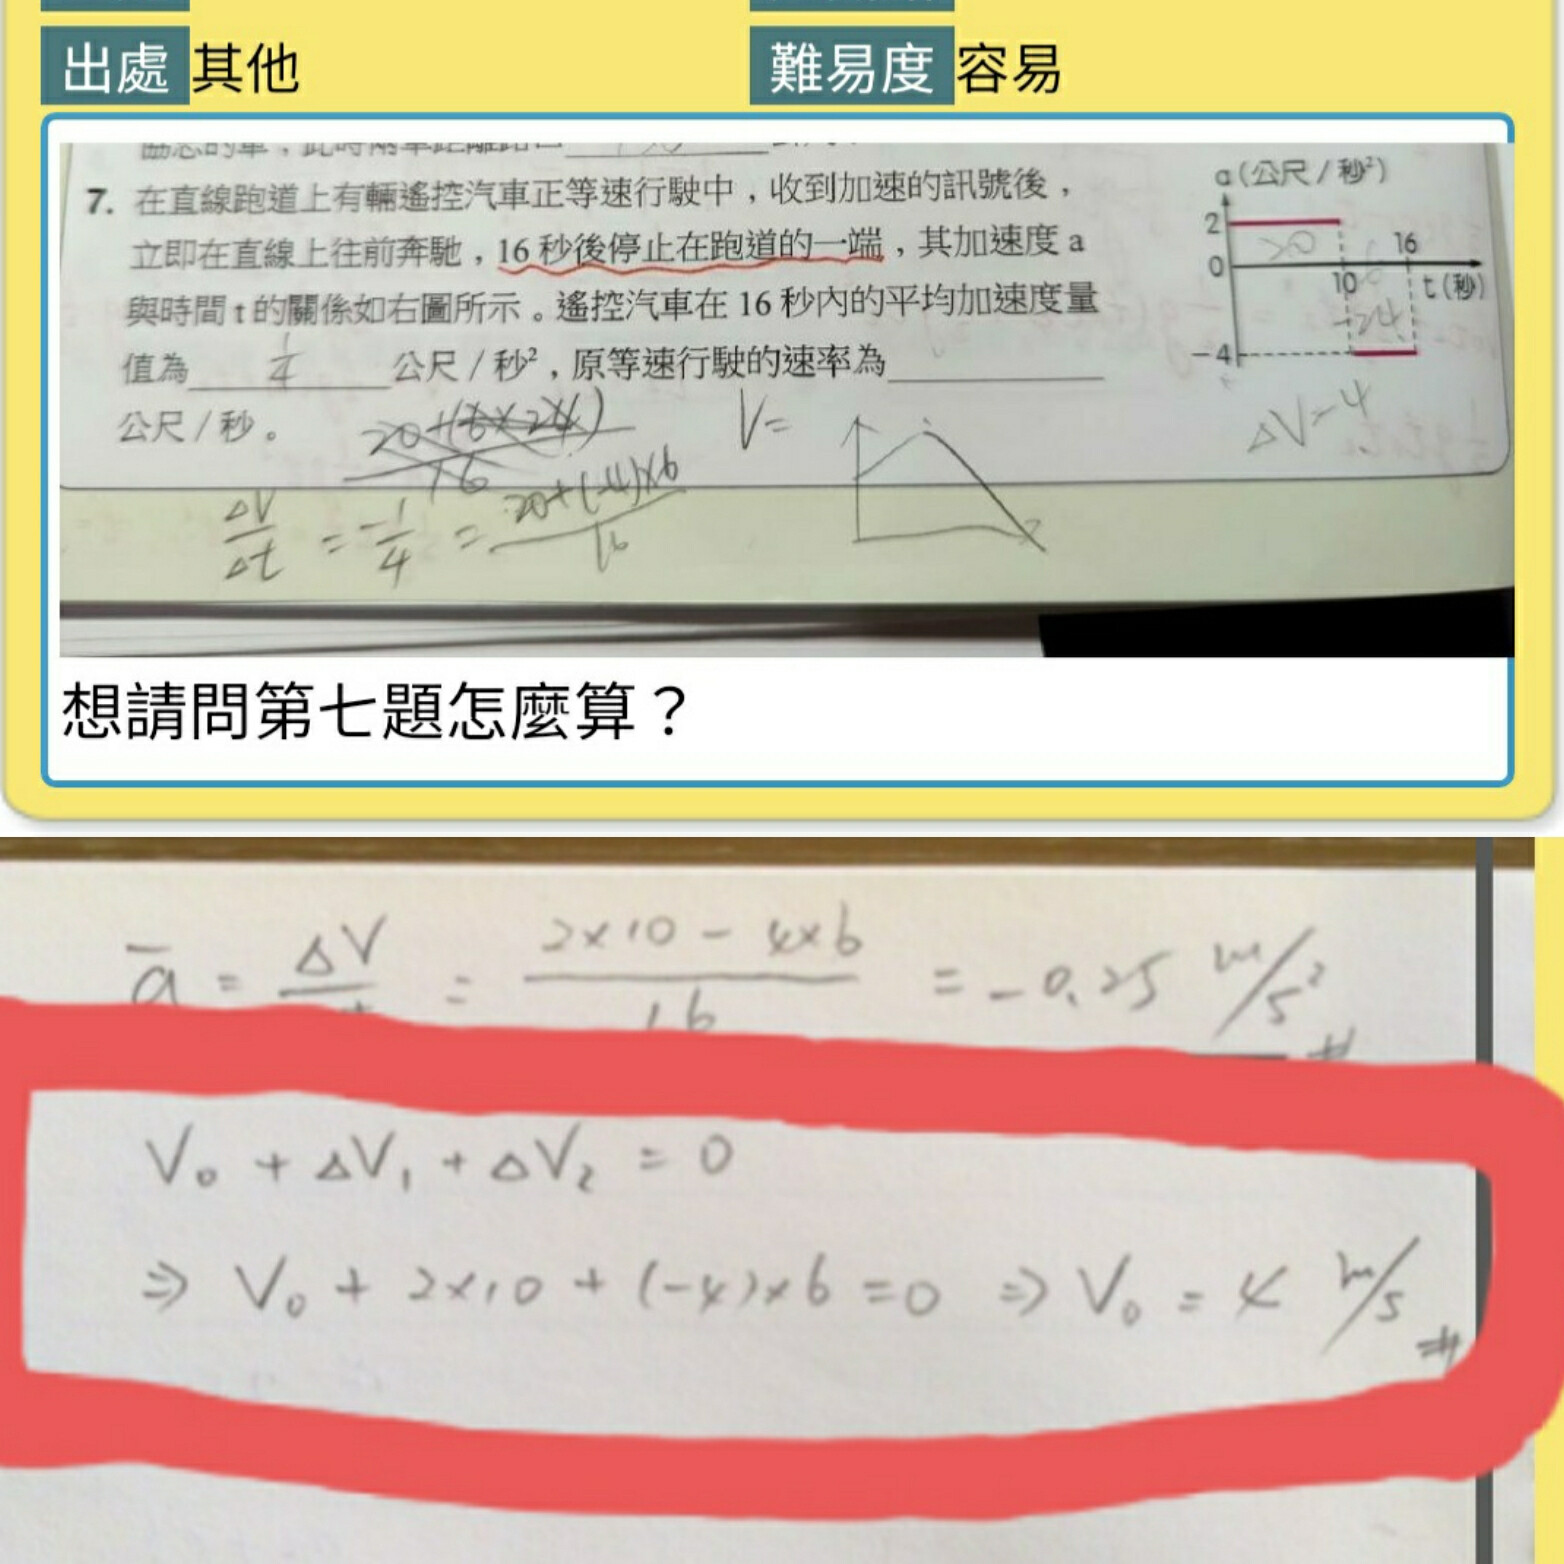 出處 其他 難易度 容易
7. 在直線跑道上有輛遙控汽車正等速行駛中，收到加速的訊號後，
立即在直線上往前奔馳，16 秒後停止在跑道的一端，其加速度 a
與時間 t 的關係如右圖所示。遙控汽車在 16 秒內的平均加速度量
值為 1/4 公尺 / 秒²，原等速行駛的速率為
公尺 / 秒。
a (公尺 / 秒²)
2
16
0
10 t (秒)
-24
-4
ΔV=-4
20+(6×24)
16
V=
ΔV/Δt = -1/4 = 20+(-4)×6/16
想請問第七題怎麼算？
a̅ = ΔV = 2×10 - 4×6 / 16 = -0.25 m/s² #
V₀ + ΔV₁ + ΔV₂ = 0
⇒ V₀ + 2×10 + (-4)×6 = 0 ⇒ V₀ = 4 m/s #